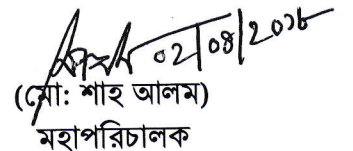 ০২/০৪/২০১৮
(মো: শাহ আলম)
মহাপরিচালক